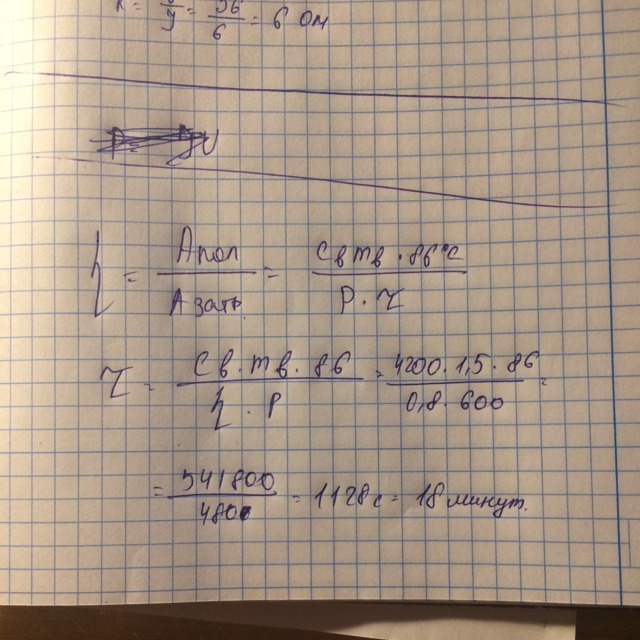 R = U/I = 36/6 = 6 Ом
η = Апол/Азатр. = Cв mв · 86°C/P · τ
τ = Cв · mв · 86/η · P = 4200 · 1,5 · 86/0,8 · 600 =
= 541800/480 = 1128 с = 18 минут.